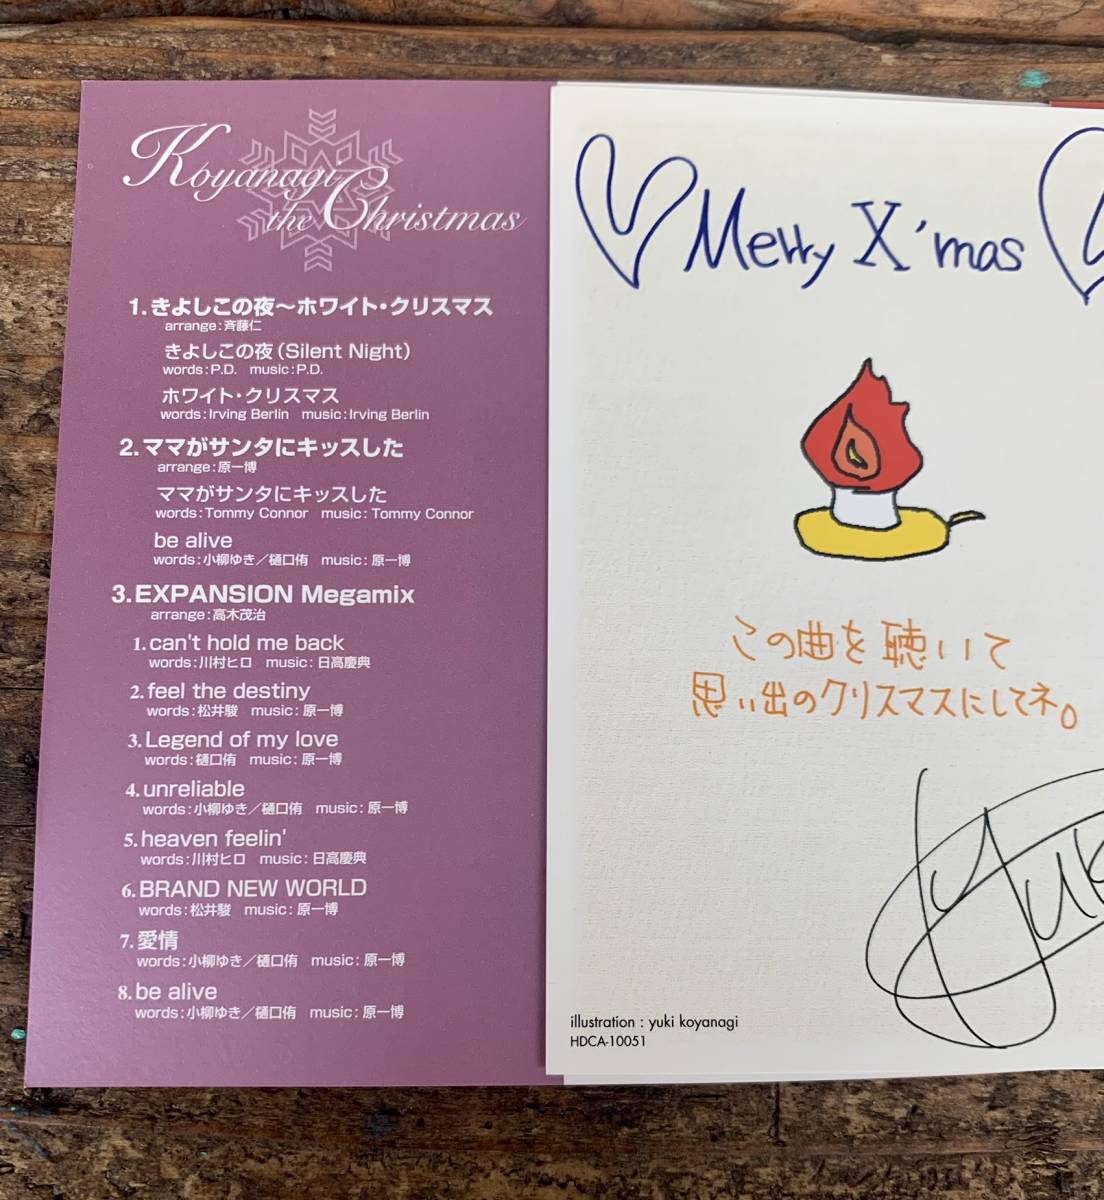 Koyanagi
the Christmas
1.きよしこの夜～ホワイト・クリスマス
arrange:斉藤仁
きよしこの夜(Silent Night)
words:P.D. music:P.D.
ホワイト・クリスマス
words:Irving Berlin music:Irving Berlin
2.ママがサンタにキッスした
arrange:原一博
ママがサンタにキッスした
words:Tommy Connor music:Tommy Connor
be alive
words:小柳ゆき／樋口侑 music:原一博
3.EXPANSION Megamix
arrange:高木茂治
1.can't hold me back
words:川村ヒロ music:日高慶典
2.feel the destiny
words:松井駿 music:原一博
3.Legend of my love
words:樋口侑 music:原一博
4.unreliable
words:小柳ゆき／樋口侑 music:原一博
5.heaven feelin'
words:川村ヒロ music:日高慶典
6.BRAND NEW WORLD
words:松井駿 music:原一博
7.愛情
words:小柳ゆき／樋口侑 music:原一博
8.be alive
words:小柳ゆき／樋口侑 music:原一博
Merry X'mas
この曲を聴いて
思い出のクリスマスにしてネ。
illustration : yuki koyanagi
HDCA-10051